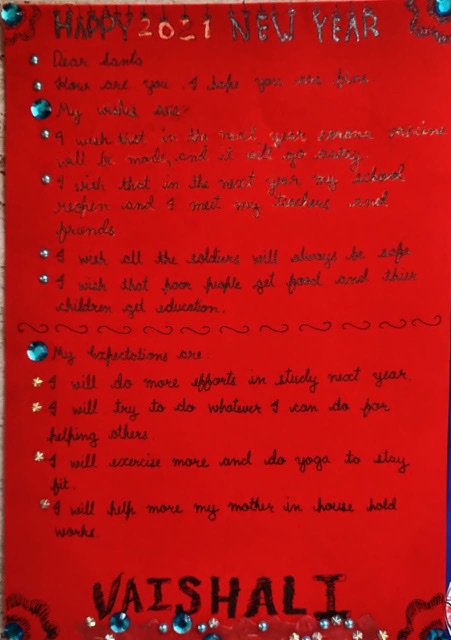 HAPPY 2021 NEW YEAR
Dear Santa
How are you. I hope you are fine
My wishes are:
I wish that in the next year corona vaccine
will be made, and it will go away.
I wish that in the next year my school
reopen and I meet my teachers and
friends
I wish all the soldiers will always be safe
I wish that poor people get food and their
children get education.
My Expectations are:
I will do more efforts in study next year.
I will try to do whatever I can do for
helping others.
I will exercise more and do yoga to stay
fit.
I will help more my mother in house hold
works.
VAISHALI